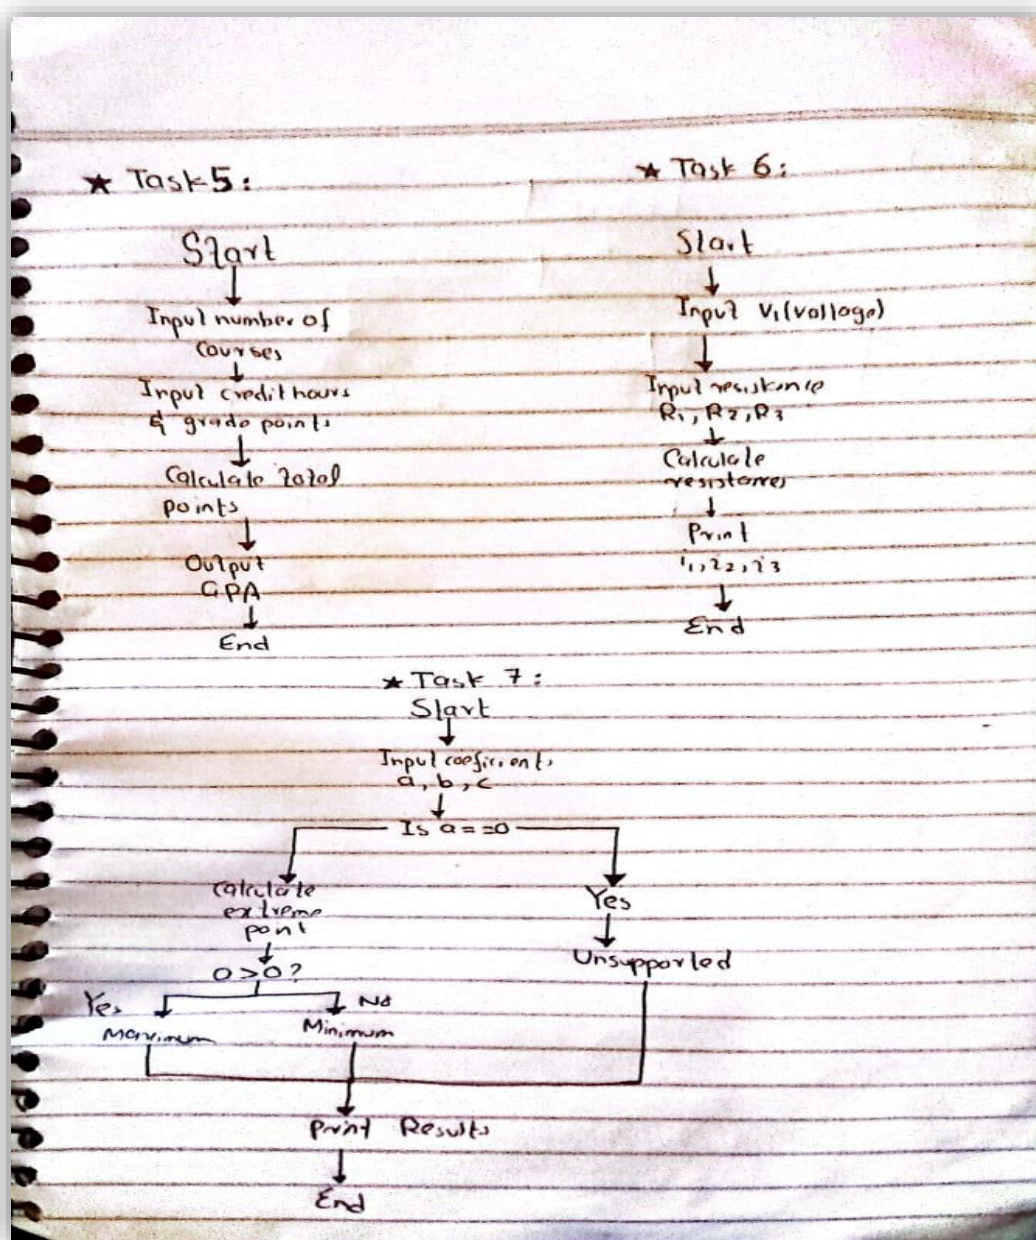 ★ Task 5:
Start
Input number of
courses
Input credit hours
& grade points
Calculate total
points
Output
GPA
End
★ Task 6:
Start
Input V₁(voltage)
Input resistance
R₁, R₂, R₃
Calculate
resistances
Print
i₁, i₂, i₃
End
★ Task 7:
Start
Input coeficients
a, b, c
Is a==0
Calculate
extreme
point
a>0?
Yes
No
Maximum
Minimum
Yes
Unsupported
Print Results
End